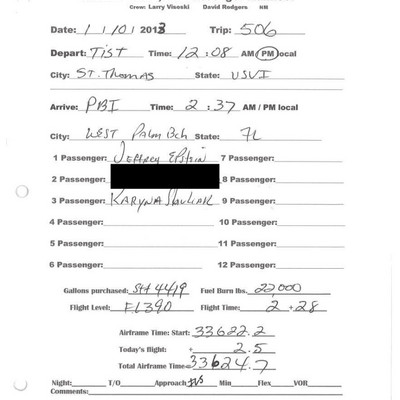 Crew: Larry Visoski David Rodgers
Date: 1/10/2013 Trip: 506
Depart: TIST Time: 12:08 AM/PM local
City: ST. Thomas State: USVI
Arrive: PBI Time: 2:37 AM / PM local
City: WEST Palm Bch State: FL
1 Passenger: Jeffrey Epstein 7 Passenger:
2 8 Passenger:
3 Passenger: KARYNA Shuliak 9 Passenger:
4 Passenger: 10 Passenger:
5 Passenger: 11 Passenger:
6 Passenger: 12 Passenger:
Gallons purchased: 4419 Fuel Burn lbs. 22,000
Flight Level: FL390 Flight Time: 2 + 28
Airframe Time: Start: 33622.2
Today's flight: + 2.5
Total Airframe Time= 33624.7
Night: T/O Approach Min Flex VOR
Comments: